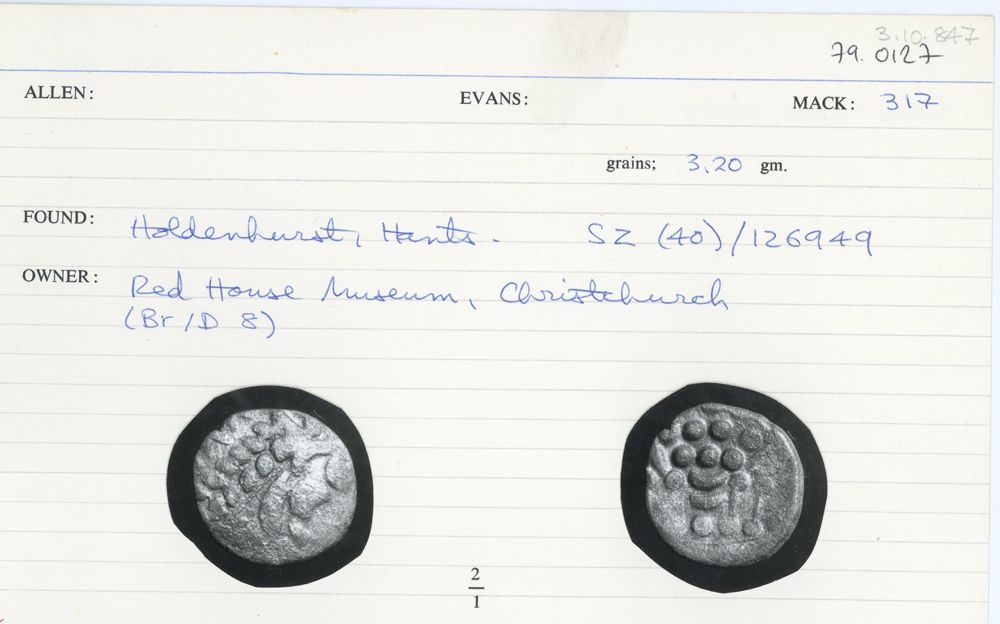 3.10.847
79.0127
ALLEN: EVANS: MACK: 317
grains; 3.20 gm.
FOUND: Holdenhurst, Hants. SZ (40)/126949
OWNER: Red House Museum, Christchurch
(Br/D 8)
2
1